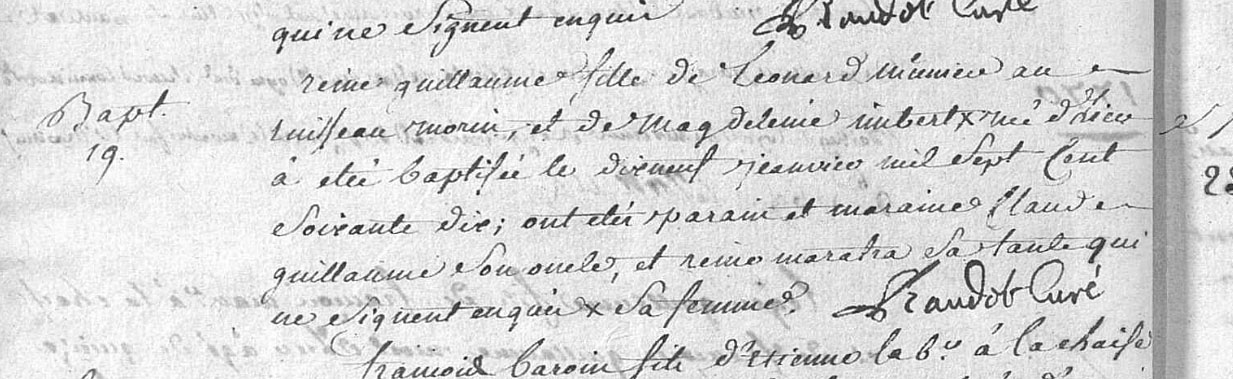 qui ne signent enquis randot Curé
reine guillaume fille de Leonard meunier au
Bapt. ruisseau morin, et de magdeleine imbert x né d'hier
19. à eté baptisée le dixneuf jeanvier mil sept Cent
soixante dix; ont etés parain et maraine Claude
guillaume son oncle, et reine maratra sa tante qui
ne signent enquis x sa femme. randot Curé
francois baroin fils d'etienne lab.r à la chaise